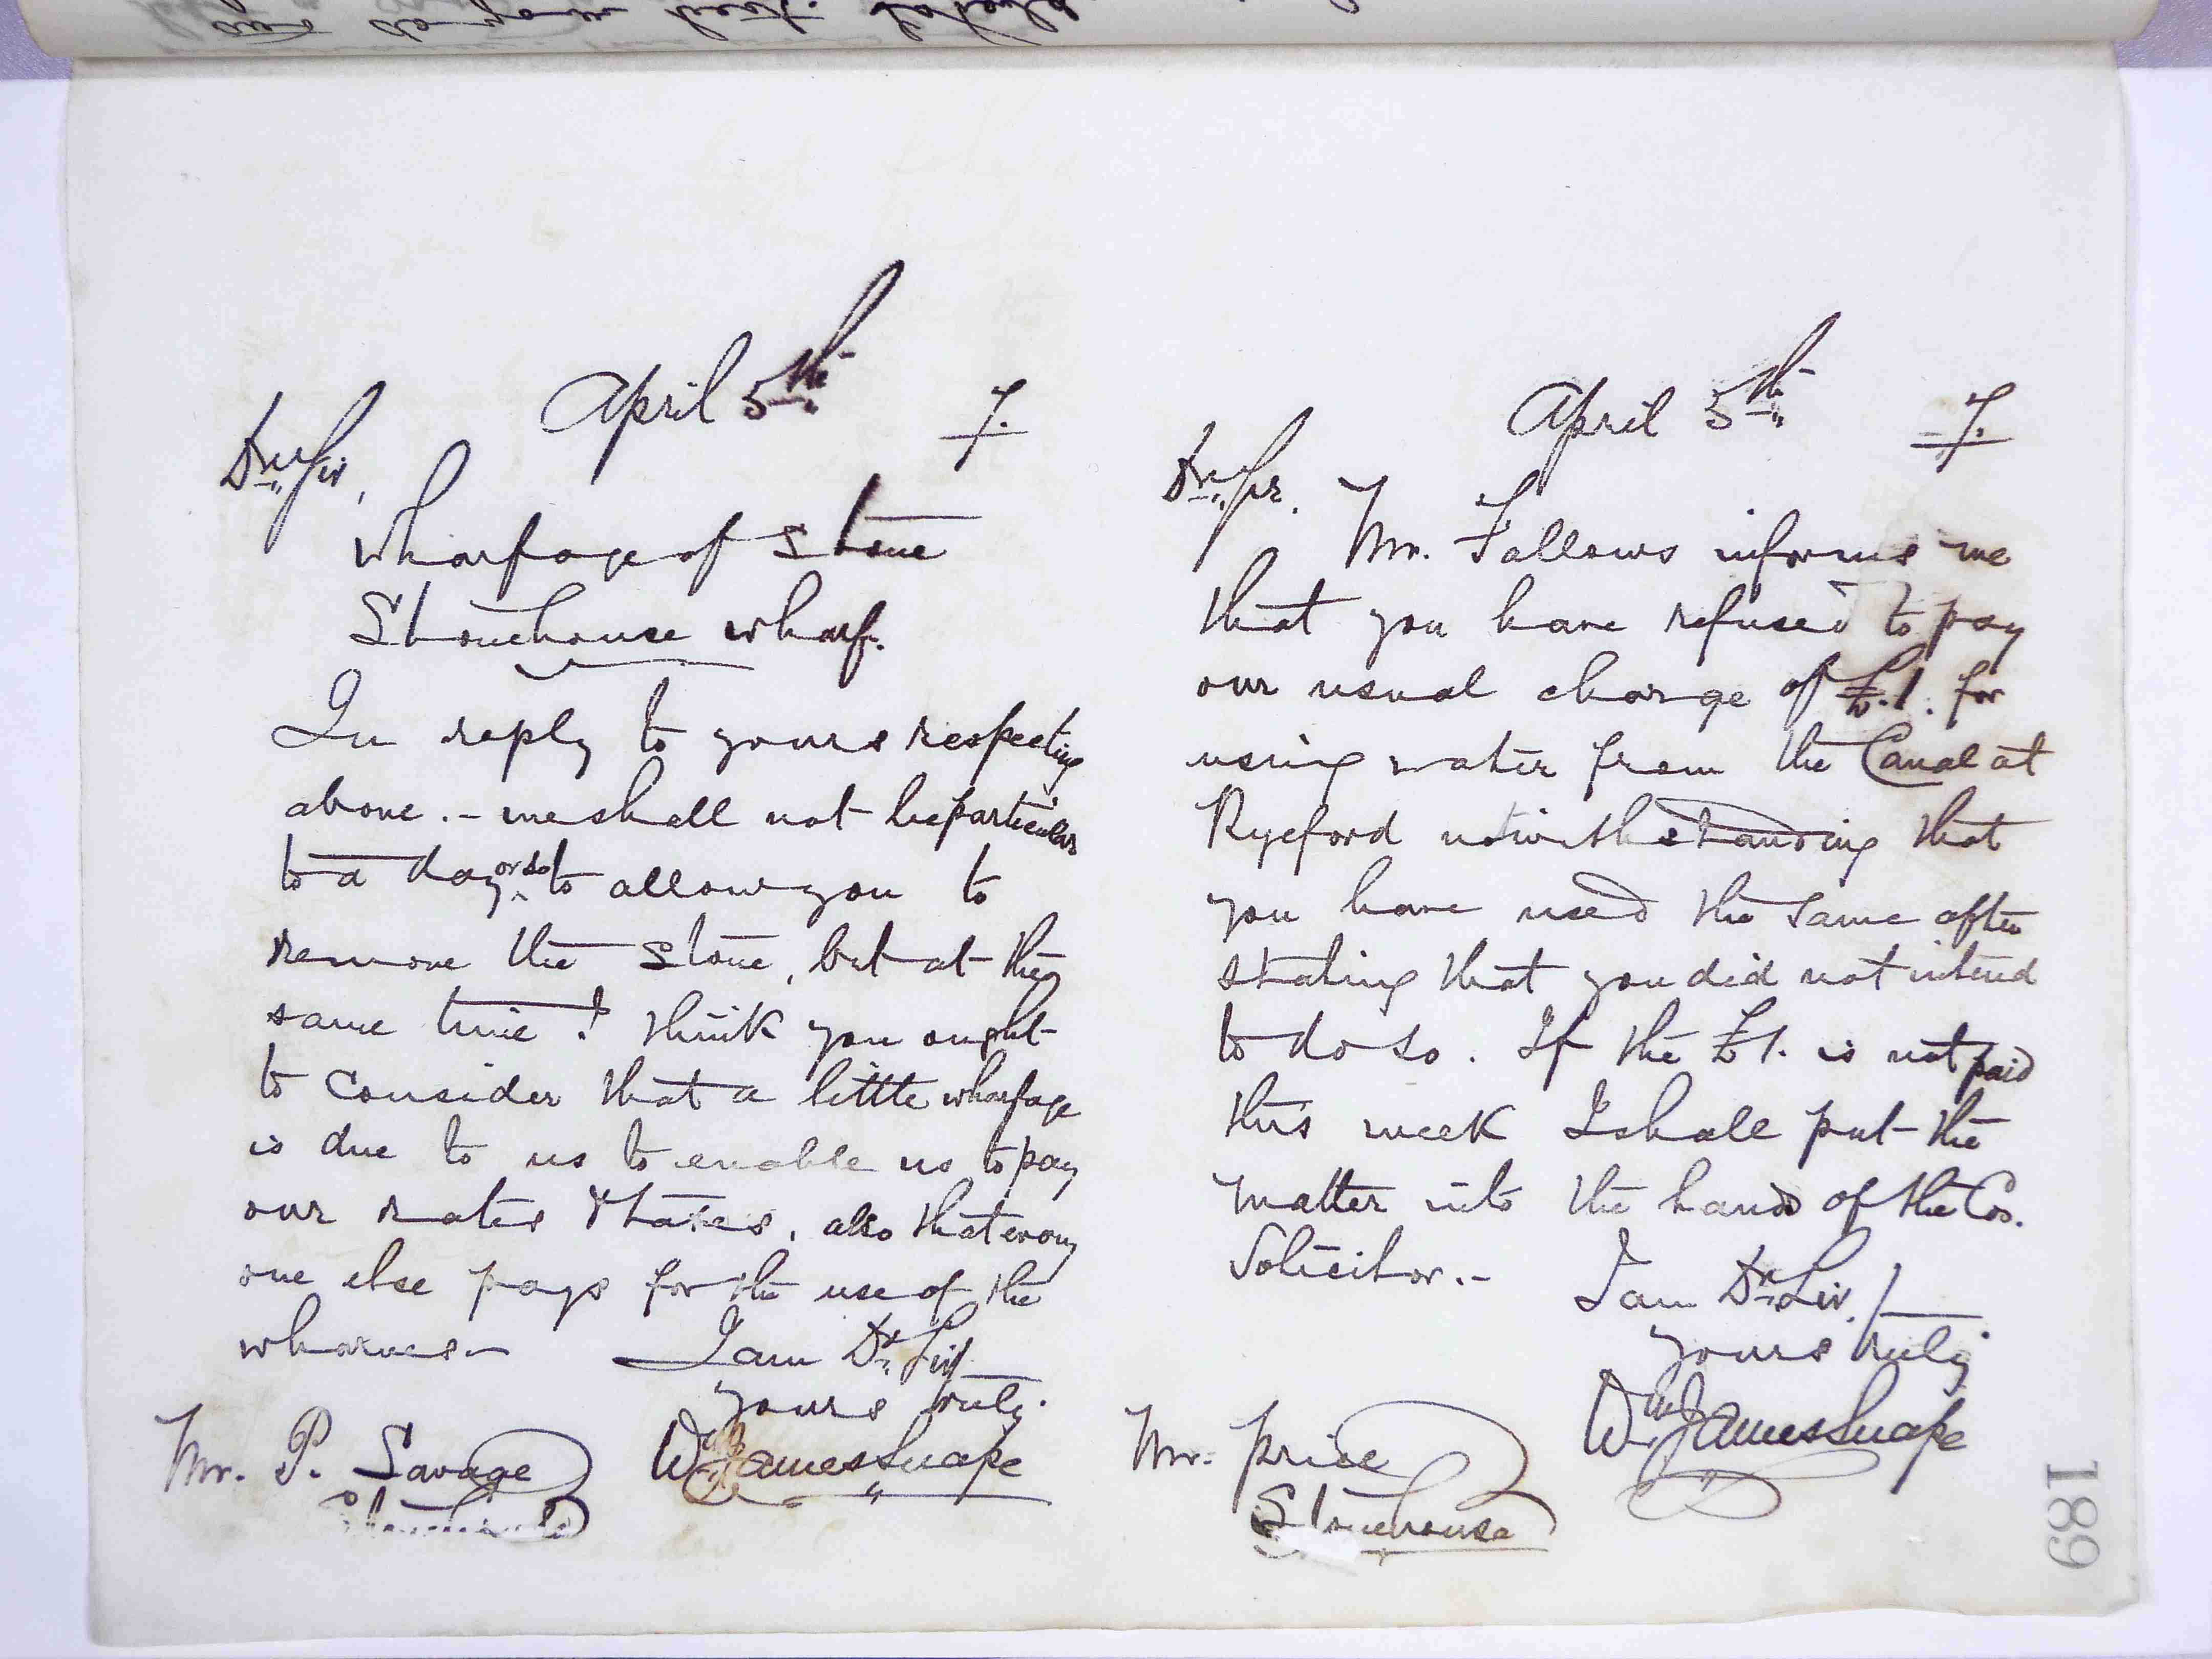 April 5th 7.
Dr Sir,
Wharfage of Stone
Stonehouse Wharf.
In reply to yours respecting
above. - we shall not be particular
to a day or so to allow you to
remove the stone, but at the
same time I think you ought
to consider that a little wharfage
is due to us to enable us to pay
our rates & taxes, also that every
one else pays for the use of the
wharves -
I am Dr Sir
yours truly.
Wm James Snape
Mr. P. Savage
Stonehouse
April 5th 7.
Dr Sir.
Mr. Fallows informs me
that you have refused to pay
our usual charge of £.1. for
using water from the Canal at
Ryeford notwithstanding that
you have used the same after
stating that you did not intend
to do so. If the £1. is not paid
this week I shall put the
matter into the hands of the Cos.
Solicitor. -
I am Dr Sir,
yours truly
Wm James Snape
Mr. Price
Stonehouse
189